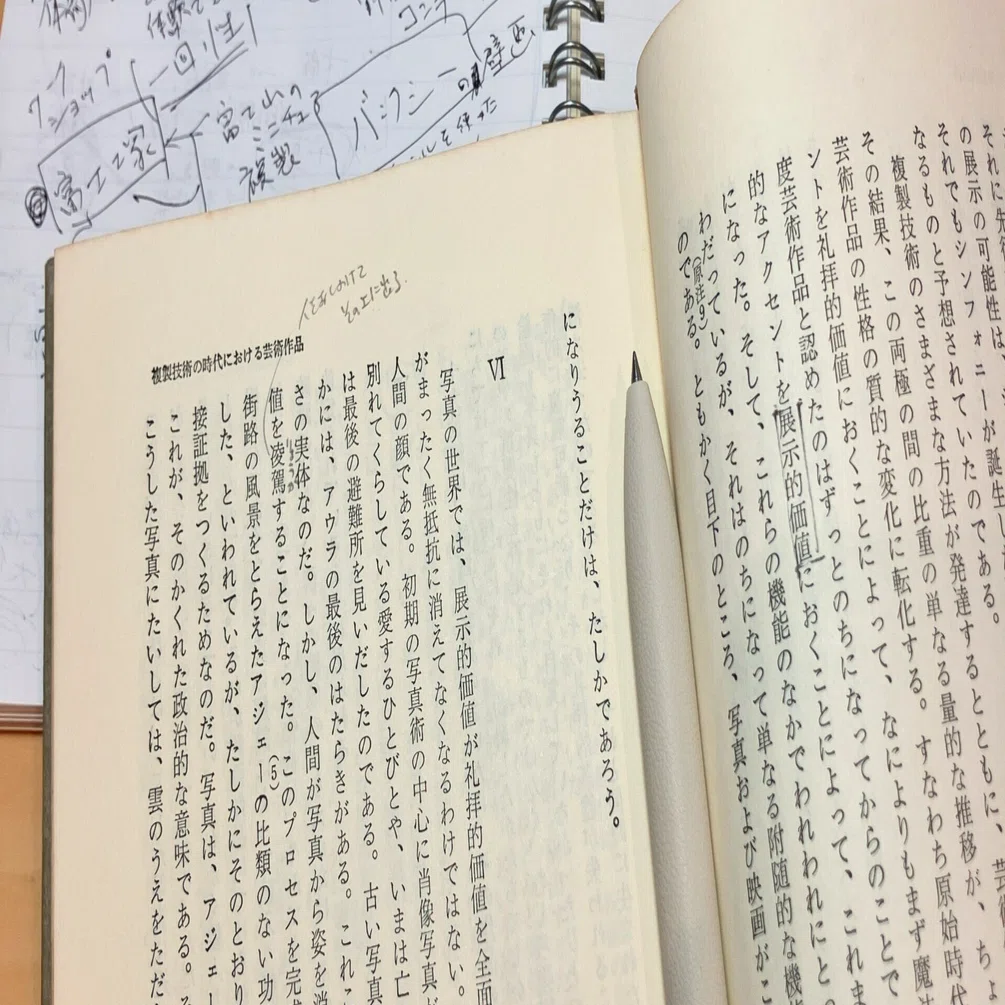 ワーク
ショップ
一回性
富士塚
富士山の
ミニチュア
複製
バンクシーの壁画
それに先行
の展示の可能性は
それでもシンフォニーが誕生し
なるものと予想されていたのである。
複製技術のさまざまな方法が発達するとともに、芸術
その結果、この両極の間の比重の単なる量的な推移が、ちょ
芸術作品の性格の質的な変化に転化する。すなわち原始時代
ントを礼拝的価値におくことによって、なによりもまず魔
度芸術作品と認めたのはずっとのちになってからのことで
的なアクセントを展示的価値におくことによって、これま
になった。そして、これらの機能のなかでわれわれにと
わだっているが、それはのちになって単なる附随的な機
(原注9)
のである。ともかく目下のところ、写真および映画がこ
になりうることだけは、たしかであろう。
Ⅵ
写真の世界では、展示的価値が礼拝的価値を全面
がまったく無抵抗に消えてなくなるわけではない。
人間の顔である。初期の写真術の中心に肖像写真が
別れてくらしている愛するひとびとや、いまは亡
は最後の避難所を見いだしたのである。古い写真
かには、アウラの最後のはたらきがある。これこ
さの実体なのだ。しかし、人間が写真から姿を消
値を凌駕することになった。このプロセスを完成
りょうが
街路の風景をとらえたアジェーの比類のない功
(5)
した、といわれているが、たしかにそのとおり
接証拠をつくるためなのだ。写真は、アジェー
これが、そのかくれた政治的な意味である。そ
こうした写真にたいしては、雲のうえをただ
複製技術の時代における芸術作品
その上に出る